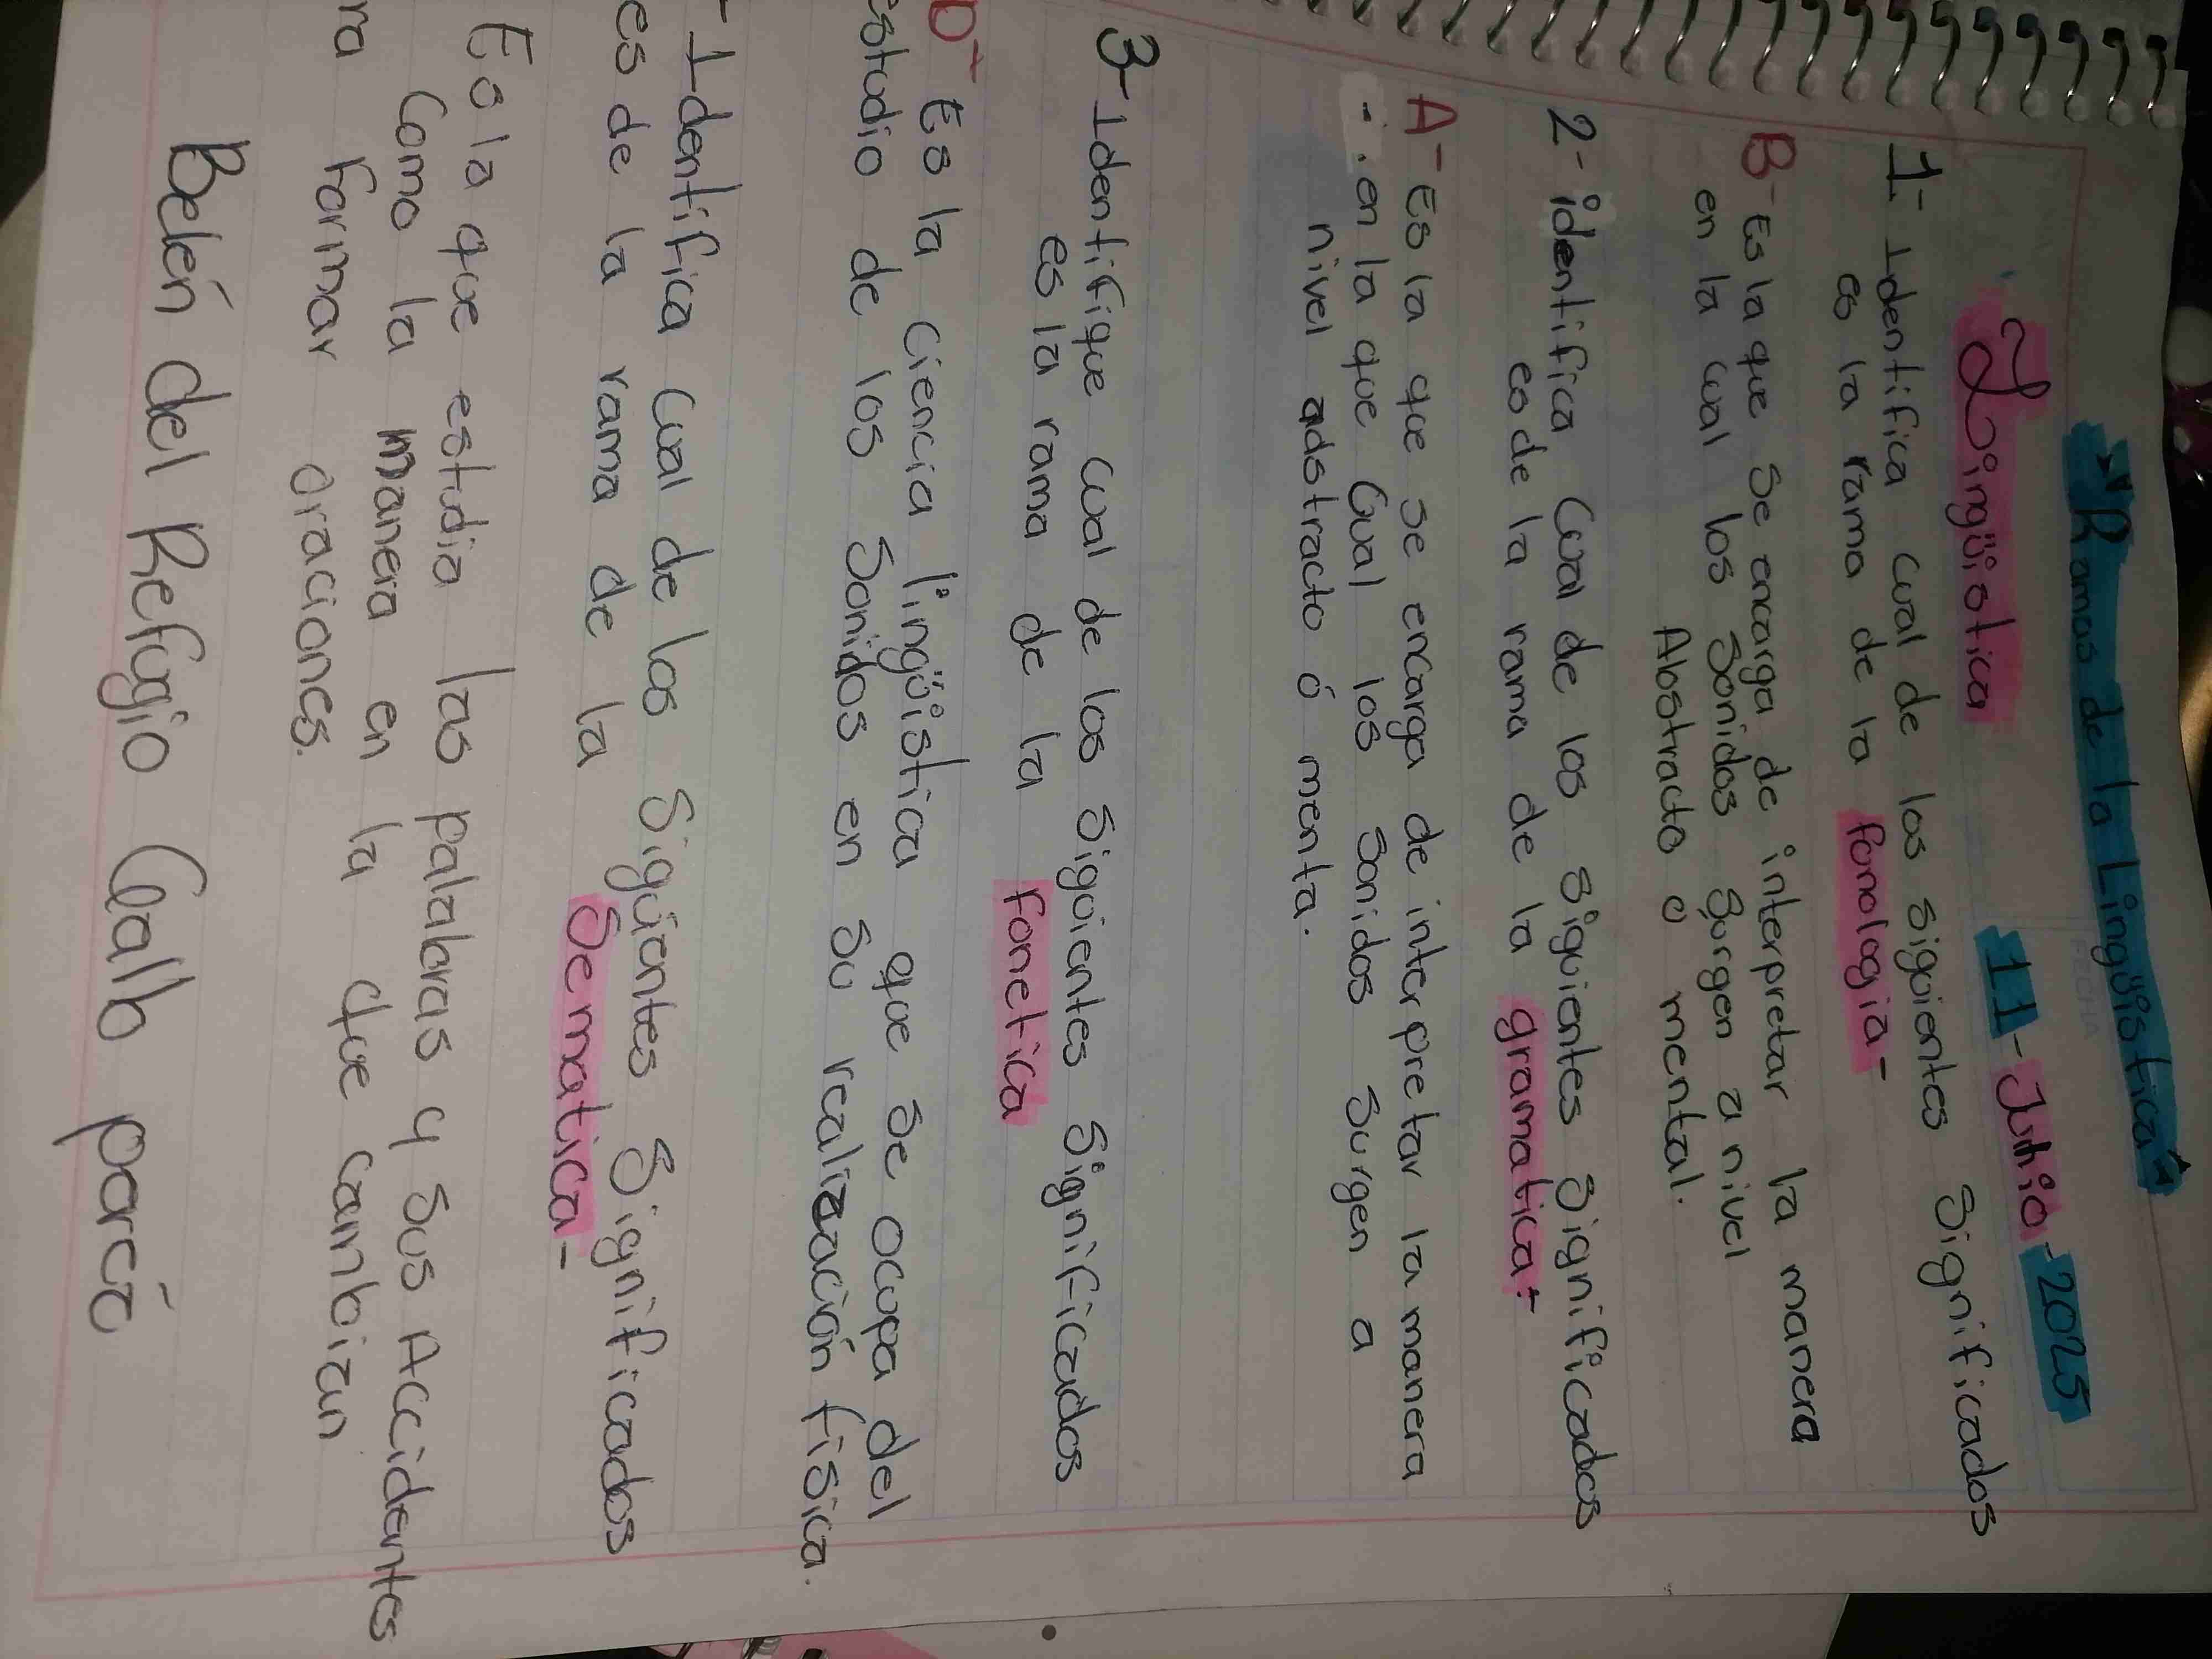 Ramas de la Lingüística
Lingüistica
11-Junio-2025
1- Identifica cual de los siguientes significados
es la rama de la fonologia-
B- Es la que se encarga de interpretar la manera
en la cual los sonidos surgen a nivel
Abstracto o mental.
2- identifica Cual de los siguientes significados
es de la rama de la gramatica-
A- Es la que se encarga de interpretar la manera
en la que Cual los sonidos surgen a
nivel adstracto ó menta.
3- Identifique cual de los siguientes significados
es la rama de la fonetica
D- Es la ciencia lingüistica que se ocupa del
estudio de los sonidos en su realización física.
- Identifica cual de los siguientes significados
es de la rama de la Sematica-
Es la que estudia las palabras y sus Accidentes
como la manera en la que cambian
ra formar oraciones.
Belén del Refugio Gallo